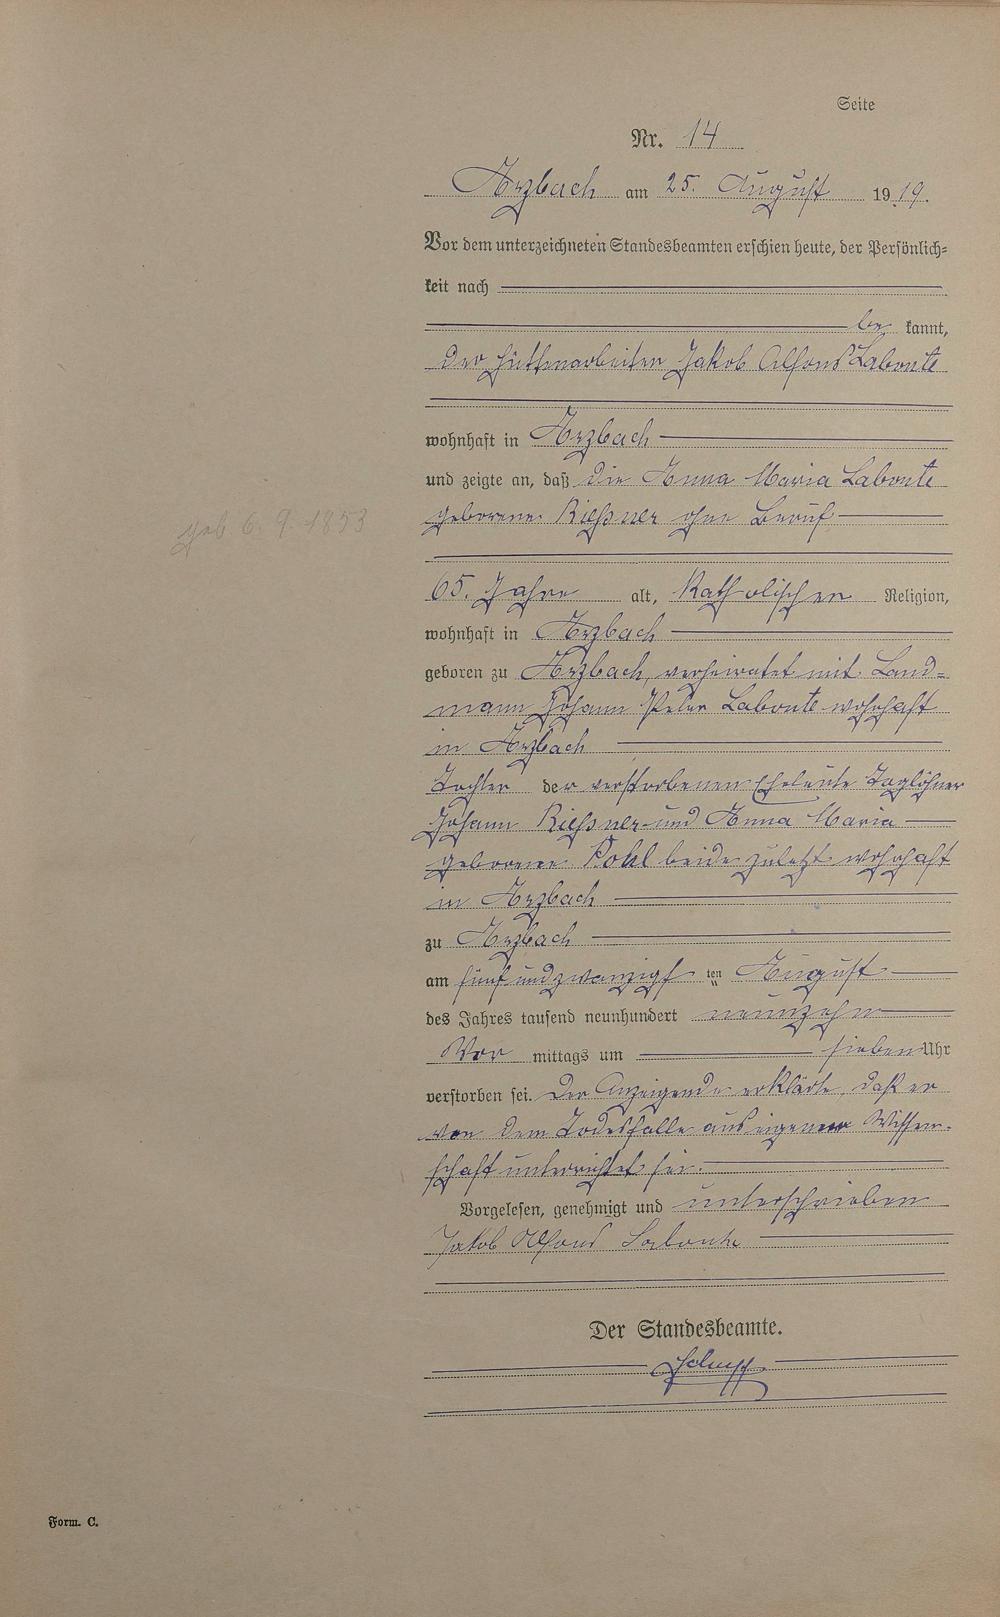 Seite
Nr. 14
Arzbach am 25. August 1919.
Vor dem unterzeichneten Standesbeamten erschien heute, der Persönlich-
keit nach
be kannt,
der Hüttenarbeiter Jakob Alfons Labonte
wohnhaft in Arzbach
und zeigte an, daß die Anna Maria Labonte
geborene Rießner ohne Beruf
geb 6. 9. 1853
65. Jahre alt, Katholischer Religion,
wohnhaft in Arzbach
geboren zu Arzbach, verheiratet mit Land-
mann Johann Peter Labonte wohnhaft
in Arzbach
Tochter der verstorbenen Eheleute Taglöhner
Johann Rießner und Anna Maria
geborene Pohl beide zuletzt wohnhaft
in Arzbach
zu Arzbach
am fünfundzwanzigsten August
des Jahres tausend neunhundert neunzehn
Vor mittags um sieben Uhr
verstorben sei. Der Anzeigende erklärte, daß er
von dem Todesfalle aus eigener Wissen-
schaft unterrichtet sei.
Vorgelesen, genehmigt und unterschrieben
Jakob Alfons Labonte
Der Standesbeamte.
Form. C.